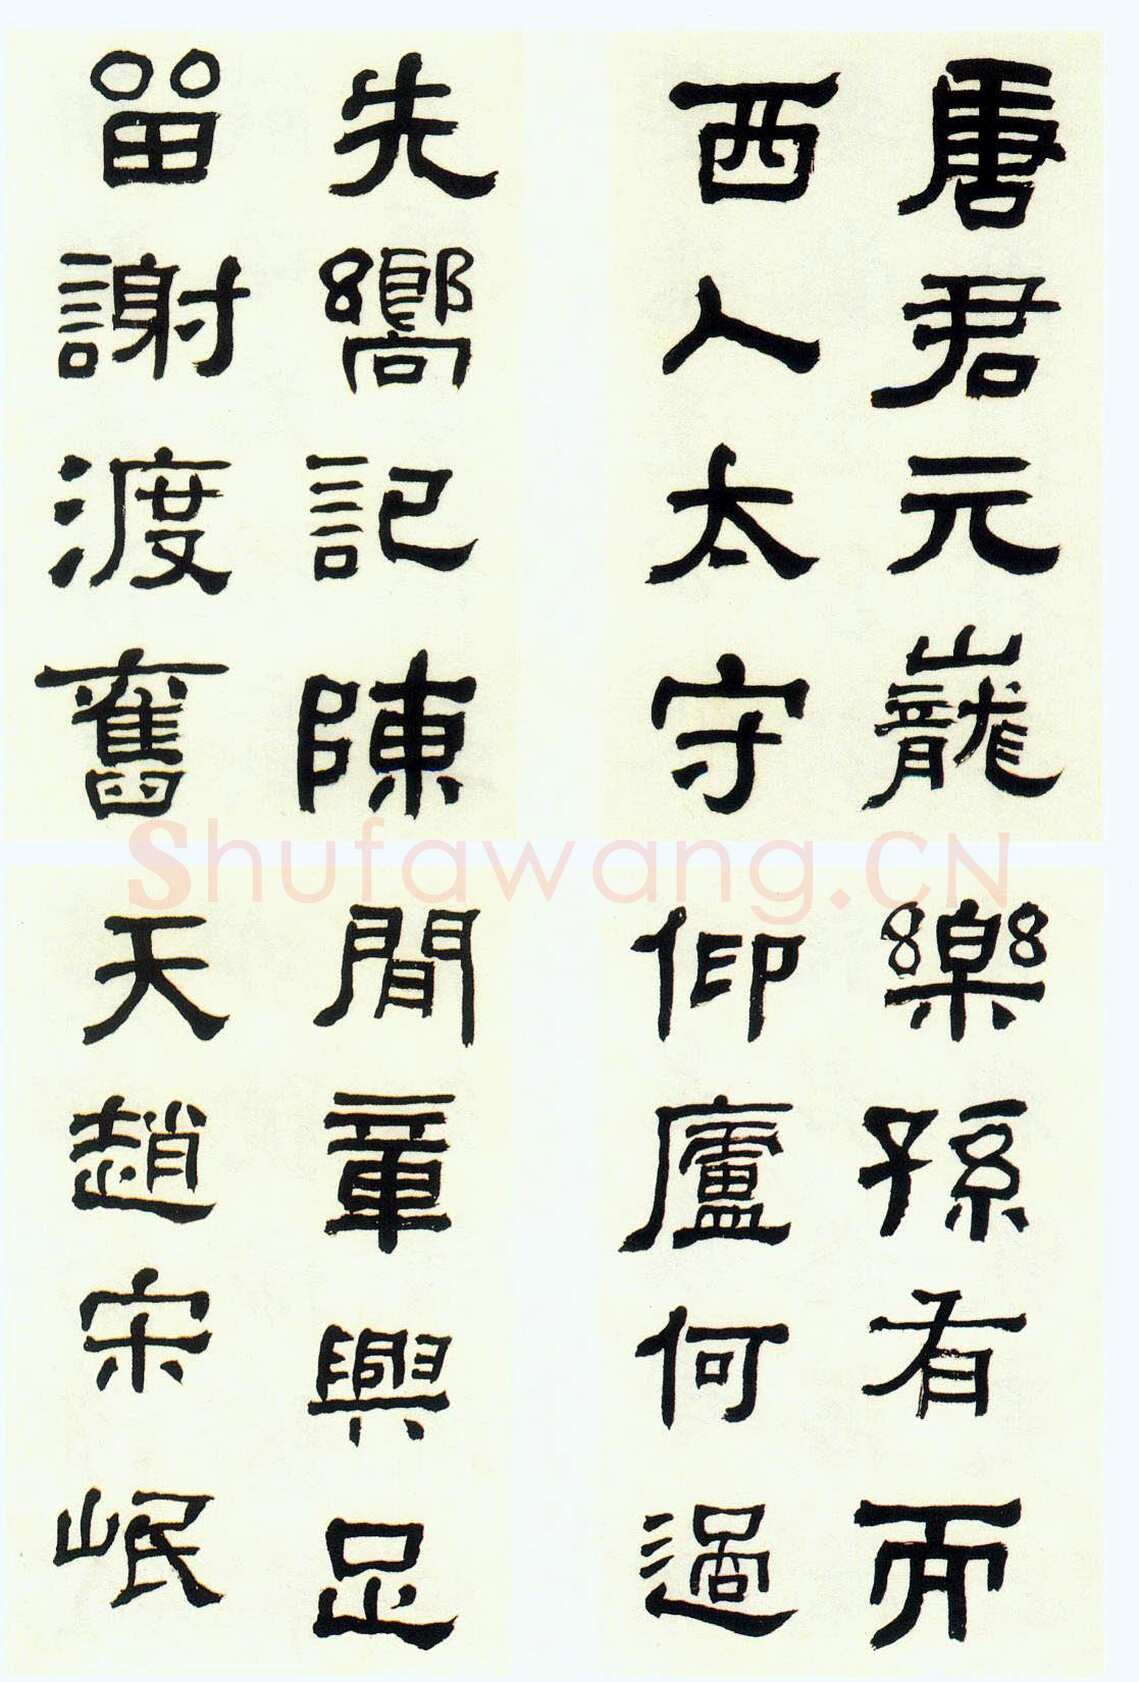 唐君元巃
西人太守
先嚮記陳
留謝渡奮
樂孫有而
仰廬何過
閒章興足
天趙宋岷
Shufawang.CN